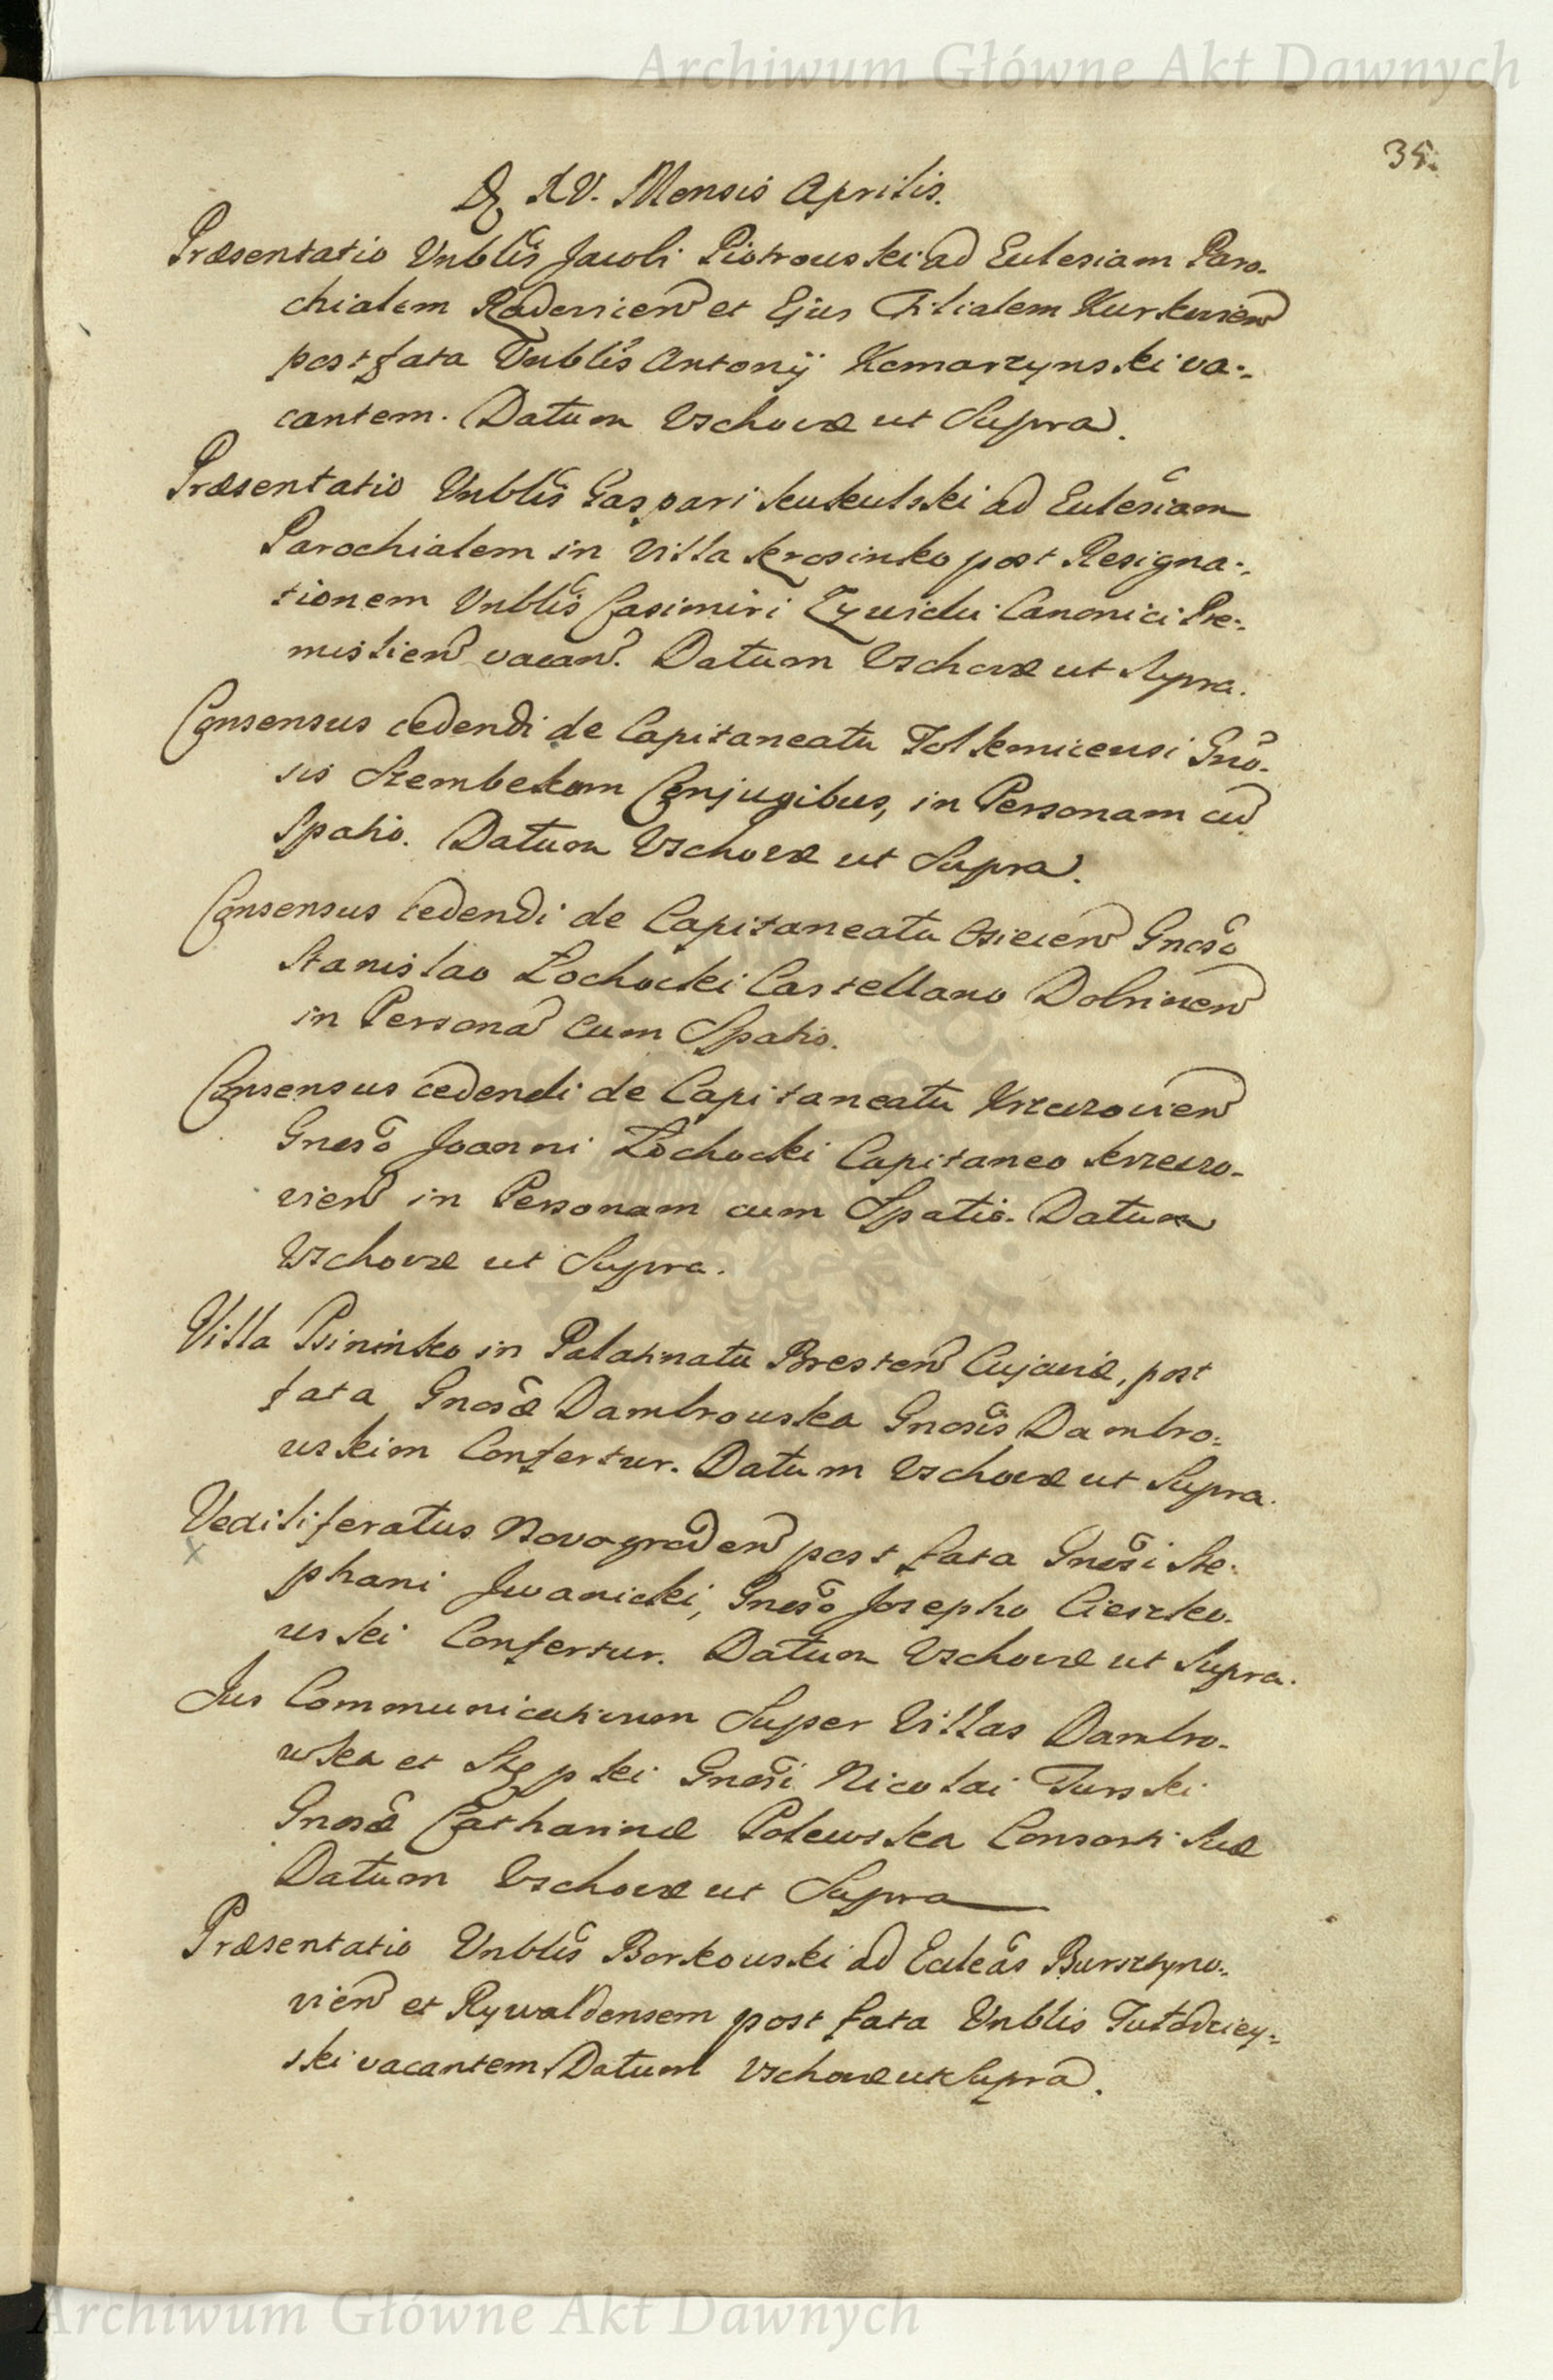 Archiwum Główne Akt Dawnych
35.
D. XV. Mensis Aprilis.
Præsentatio Vnblis Jacobi Piotrowski ad Ecclesiam Paro-
chialem Radenicen et Ejus Filialem Kurkovien
post fata Vnblis Antonij Komarzynski va-
cantem. Datum Wschovæ ut Supra.
Præsentatio Vnblis Gaspari Kukulski ad Ecclesiam
Parochialem in Villa Krosinko post Resigna-
tionem Vnblis Casimiri Zywicki Canonici Pre-
mislien vacan. Datum Wschovæ ut Supra.
Consensus cedendi de Capitaneatu Tolkemicensi Gno-
sis Szembekom Conjugibus, in Personam cu
Spatio. Datum Wschovæ ut Supra.
Consensus cedendi de Capitaneatu Osiecen Gnoso
Stanislao Zochocki Castellano Dobrinen
in Persona Cum Spatio.
Consensus cedendi de Capitaneatu Krzeczovien
Gnoso Joanni Zochocki Capitaneo Krzeczo-
vien in Personam cum Spatio. Datum
Wschovæ ut Supra.
Villa Psininko in Palatinatu Bresten Cujaviæ, post
fata Gnosæ Dambrowska Gnosis Dambro-
wskim Confertur. Datum Wschovæ ut Supra.
Vexiliferatus Novograden post fata Gnosi Ste-
phani Jwanicki, Gnoso Josepho Cieszko-
wski Confertur. Datum Wschovæ ut Supra.
Jus Communicativum Super Villas Dambro-
wka et Stępki Gnosi Nicolai Turski
Gnosæ Catharinæ Polewska Consorti Suæ
Datum Wschovæ ut Supra
Præsentatio Vnblis Borkowski ad Eccleas Bursztyno-
vien et Rywaldensem post fata Vnblis
ski vacantem Datum Wschovæ ut Supra.
Archiwum Główne Akt Dawnych